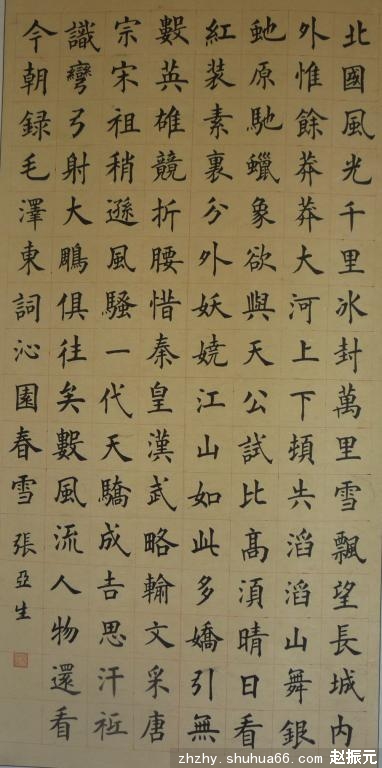 北國風光千里冰封萬里雪飄望長城内
外惟餘莽莽大河上下頓失滔滔山舞銀
虵原馳蠟象欲與天公試比髙湏晴日看
紅装素裹分外妖嬈江山如此多嬌引無
數英雄競折腰惜秦皇漢武略輸文采唐
宗宋祖稍遜風騷一代天驕成吉思汗衹
識彎弓射大鵰俱往矣數風流人物還看
今朝録毛澤東詞沁園春雪 張亞生
zhzhy.shuhua66.com 赵振元